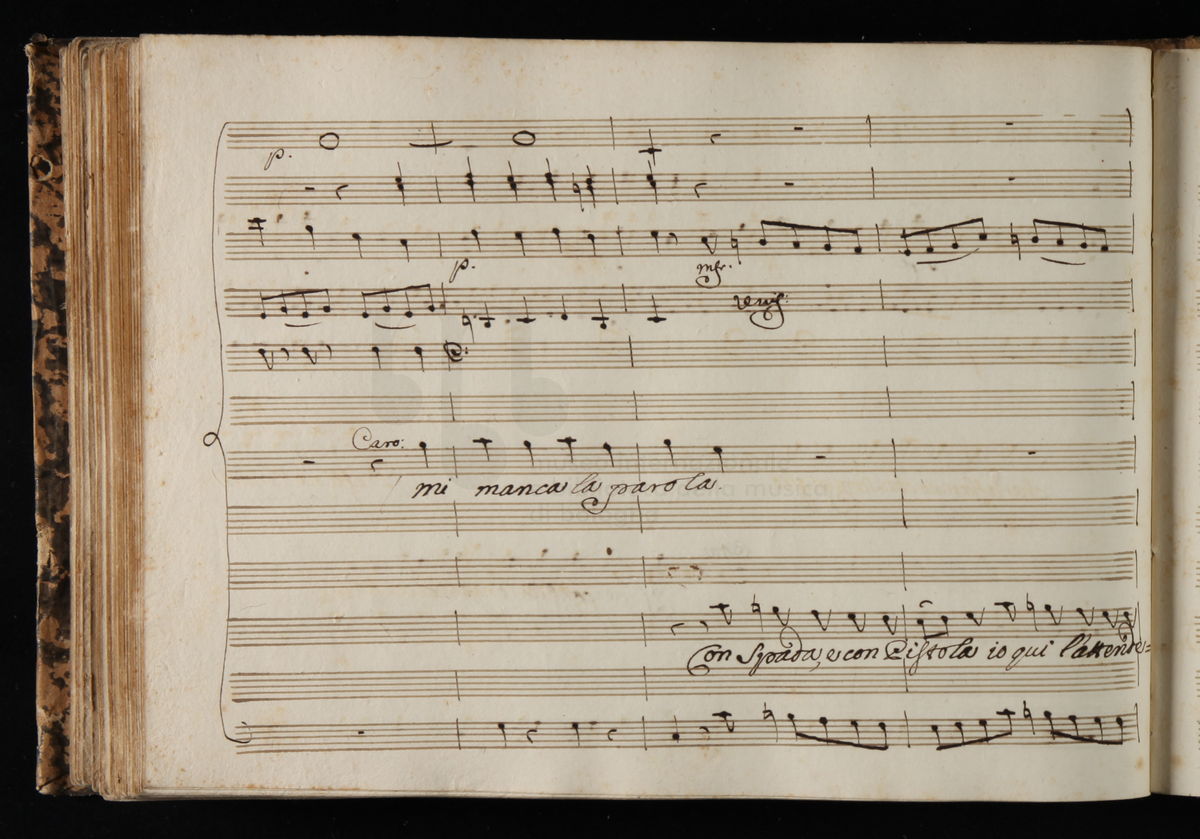 p.
p.
mfr.
unis:
Caro:
mi manca la parola.
Con Spada, e con Pistola io qui l'attende=